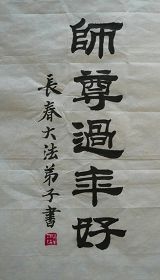 師尊過年好
長春大法弟子書